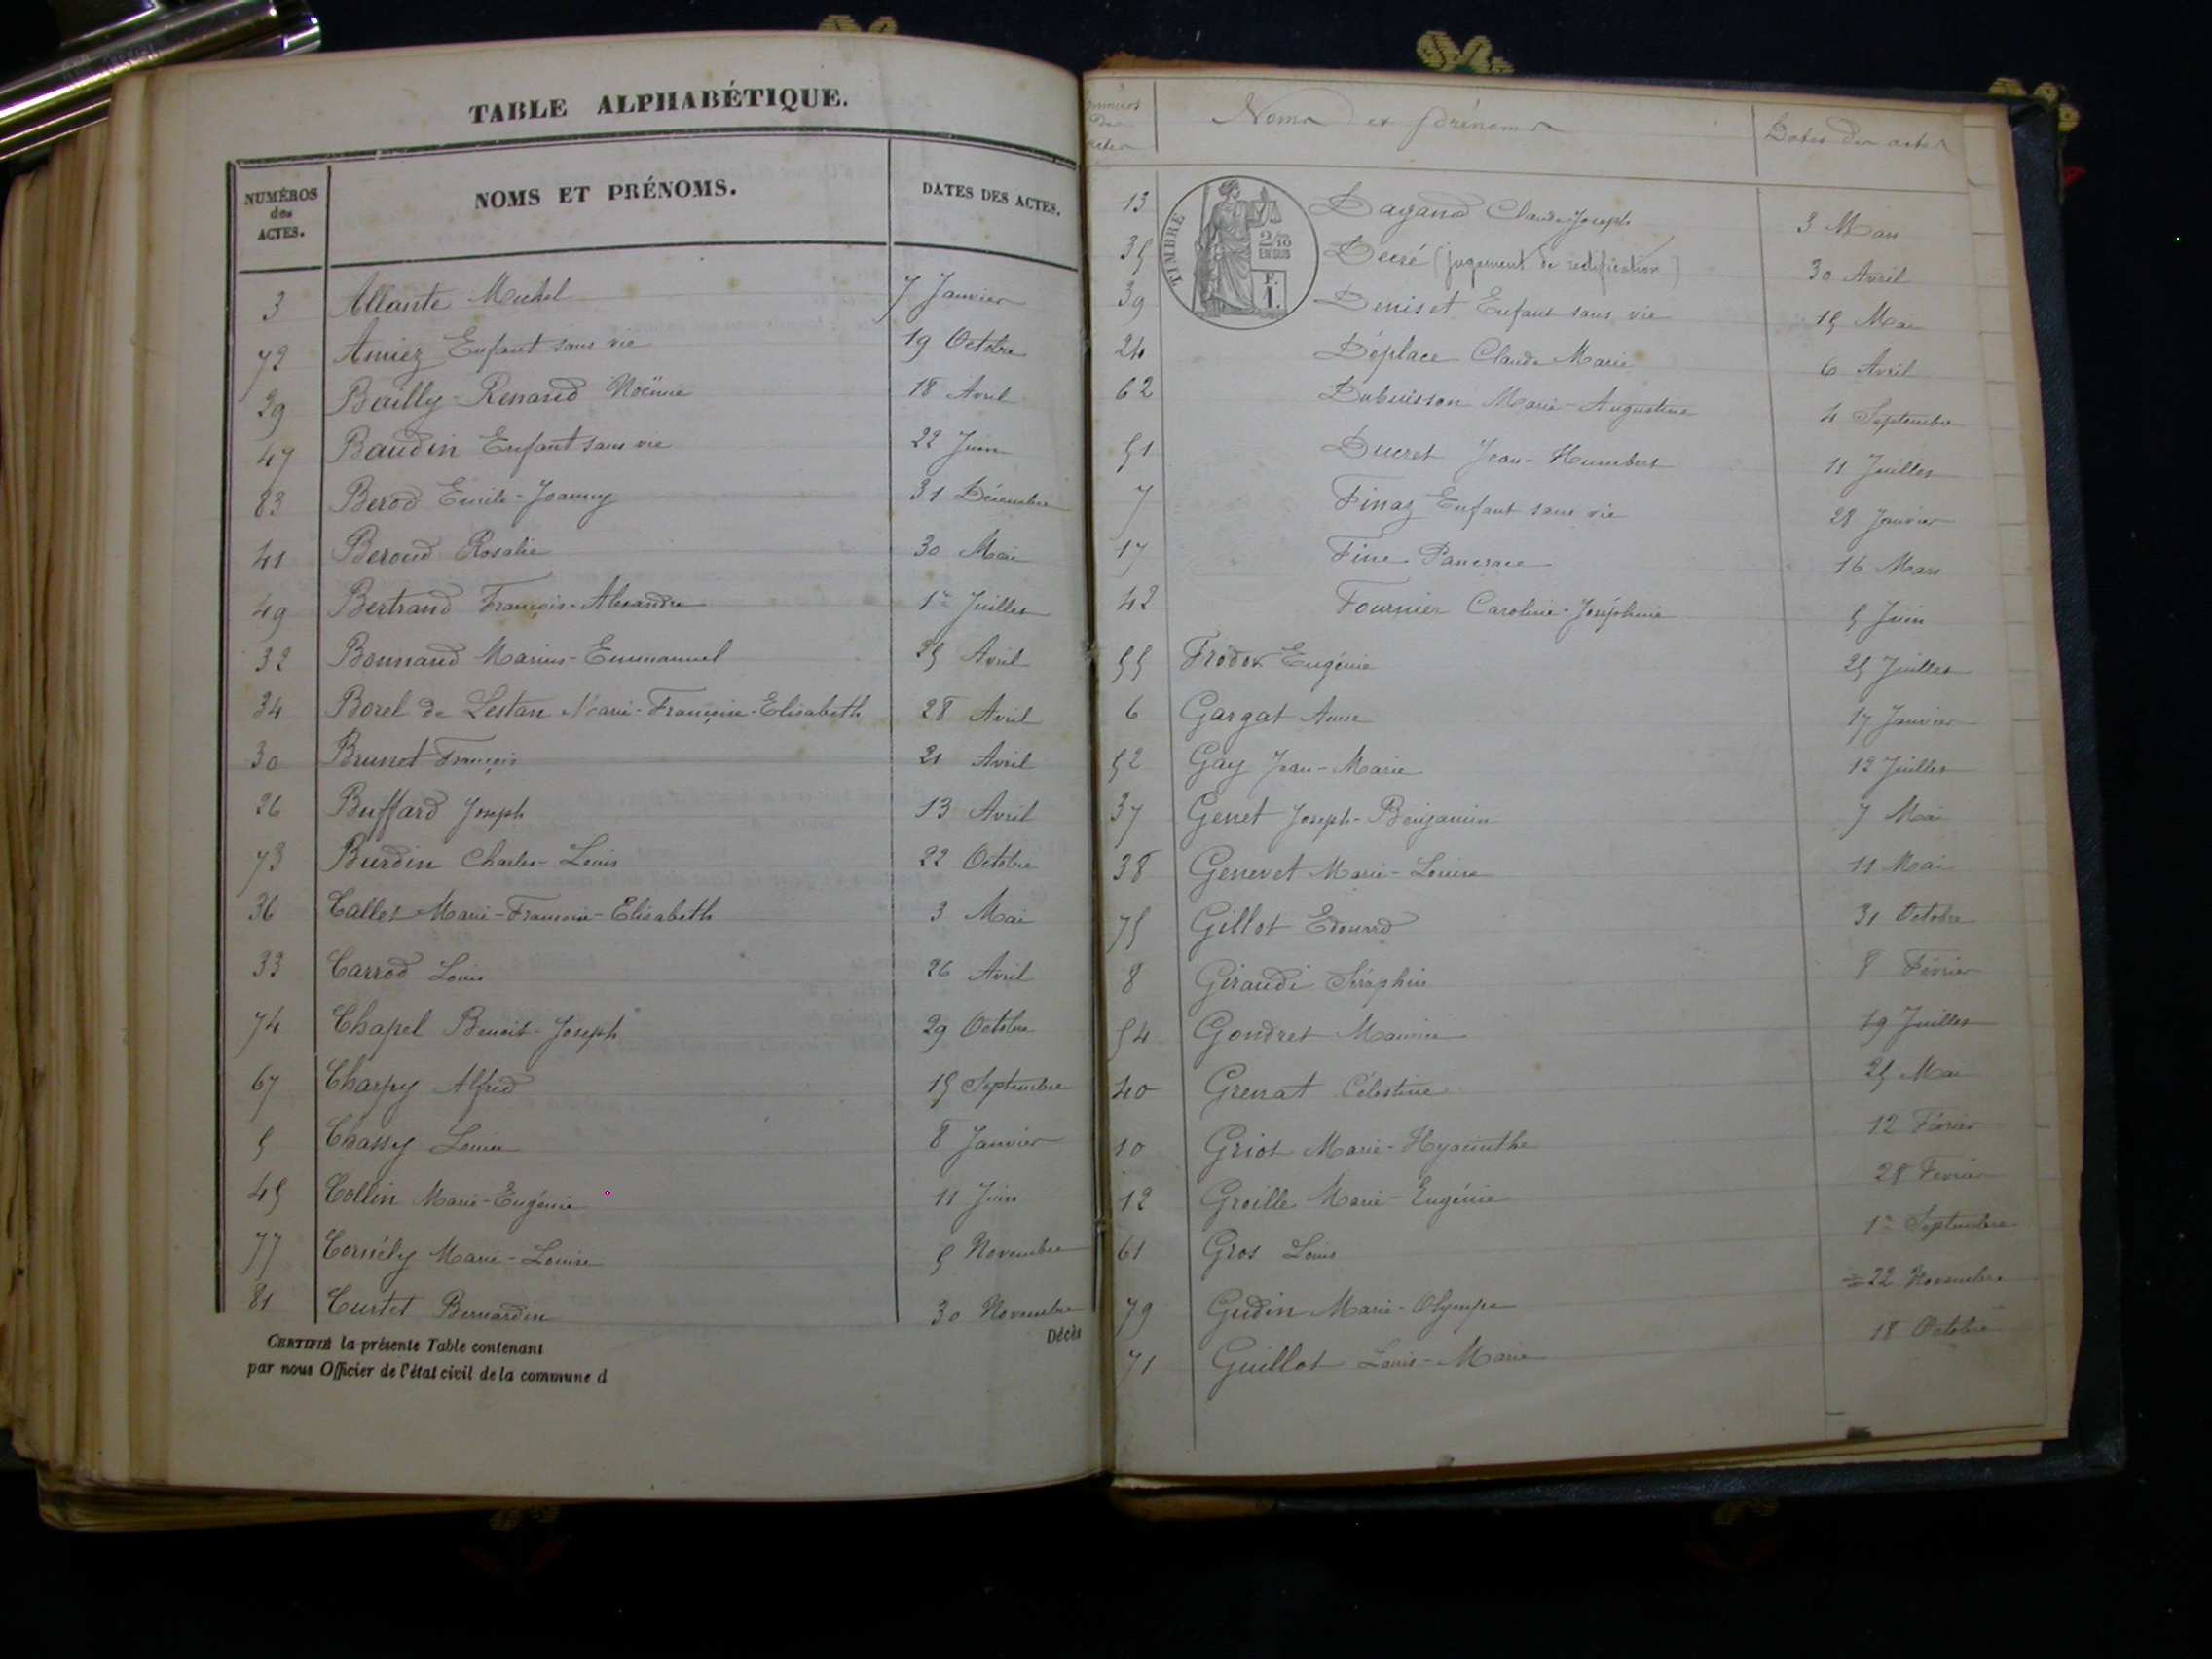 TABLE ALPHABÉTIQUE.
NUMÉROS des ACTES. NOMS ET PRÉNOMS. DATES DES ACTES.
3 Allante Michel 7 Janvier
72 Amiez Enfant sans vie 19 Octobre
29 Bailly-Renand Noëmie 18 Avril
47 Baudin Enfant sans vie 22 Juin
83 Berod Emile-Joanny 31 Décembre
41 Beroud Rosalie 30 Mai
49 Bertrand François-Alexandre 1er Juillet
32 Bonnand Marius-Emmanuel 25 Avril
34 Borel de Lestan Marie-Françoise-Elisabeth 28 Avril
30 Brunet François 21 Avril
26 Buffard Joseph 13 Avril
73 Burdin Charles-Louis 22 Octobre
36 Callet Marie-Francoise-Elisabeth 3 Mai
33 Carrod Louis 26 Avril
74 Chapel Benoit-Joseph 29 Octobre
67 Charpy Alfred 15 Septembre
5 Chassy Louise 8 Janvier
45 Collin Marie-Eugénie 11 Juin
77 Cornély Marie-Louise 5 Novembre
81 Curtet Bernardin 30 Novembre
Décès
CERTIFIÉ la présente Table contenant
par nous Officier de l'état civil de la commune d
Numéros des actes Noms et prénoms Dates des actes
TIMBRE 2/10 EN SUS F. 1.
13 Dagand Claude-Joseph 3 Mars
35 Decré (jugement de rectification) 30 Avril
39 Deniset Enfant sans vie 15 Mai
24 Déplace Claude Marie 6 Avril
62 Dubuisson Marie-Augustine 4 Septembre
51 Ducret Jean-Humbert 11 Juillet
7 Finaz Enfant sans vie 28 Janvier
17 Fine Pancrace 16 Mars
42 Fournier Caroline-Joséphine 5 Juin
55 Frodox Eugénie 25 Juillet
6 Gargat Anne 17 Janvier
52 Gay Jean-Marie 12 Juillet
37 Genet Joseph-Benjamin 7 Mai
38 Genevet Marie-Louise 11 Mai
75 Gillot Edouard 31 Octobre
8 Giraudi Séraphin 8 Février
54 Gondret Maurice 19 Juillet
40 Grenat Célestine 25 Mai
10 Griot Marie-Hyacinthe 12 Février
12 Groille Marie-Eugénie 28 Février
61 Gros Louis 1er Septembre
79 Gudin Marie-Olympe 22 Novembre
71 Guillot Louis-Marie 18 Octobre